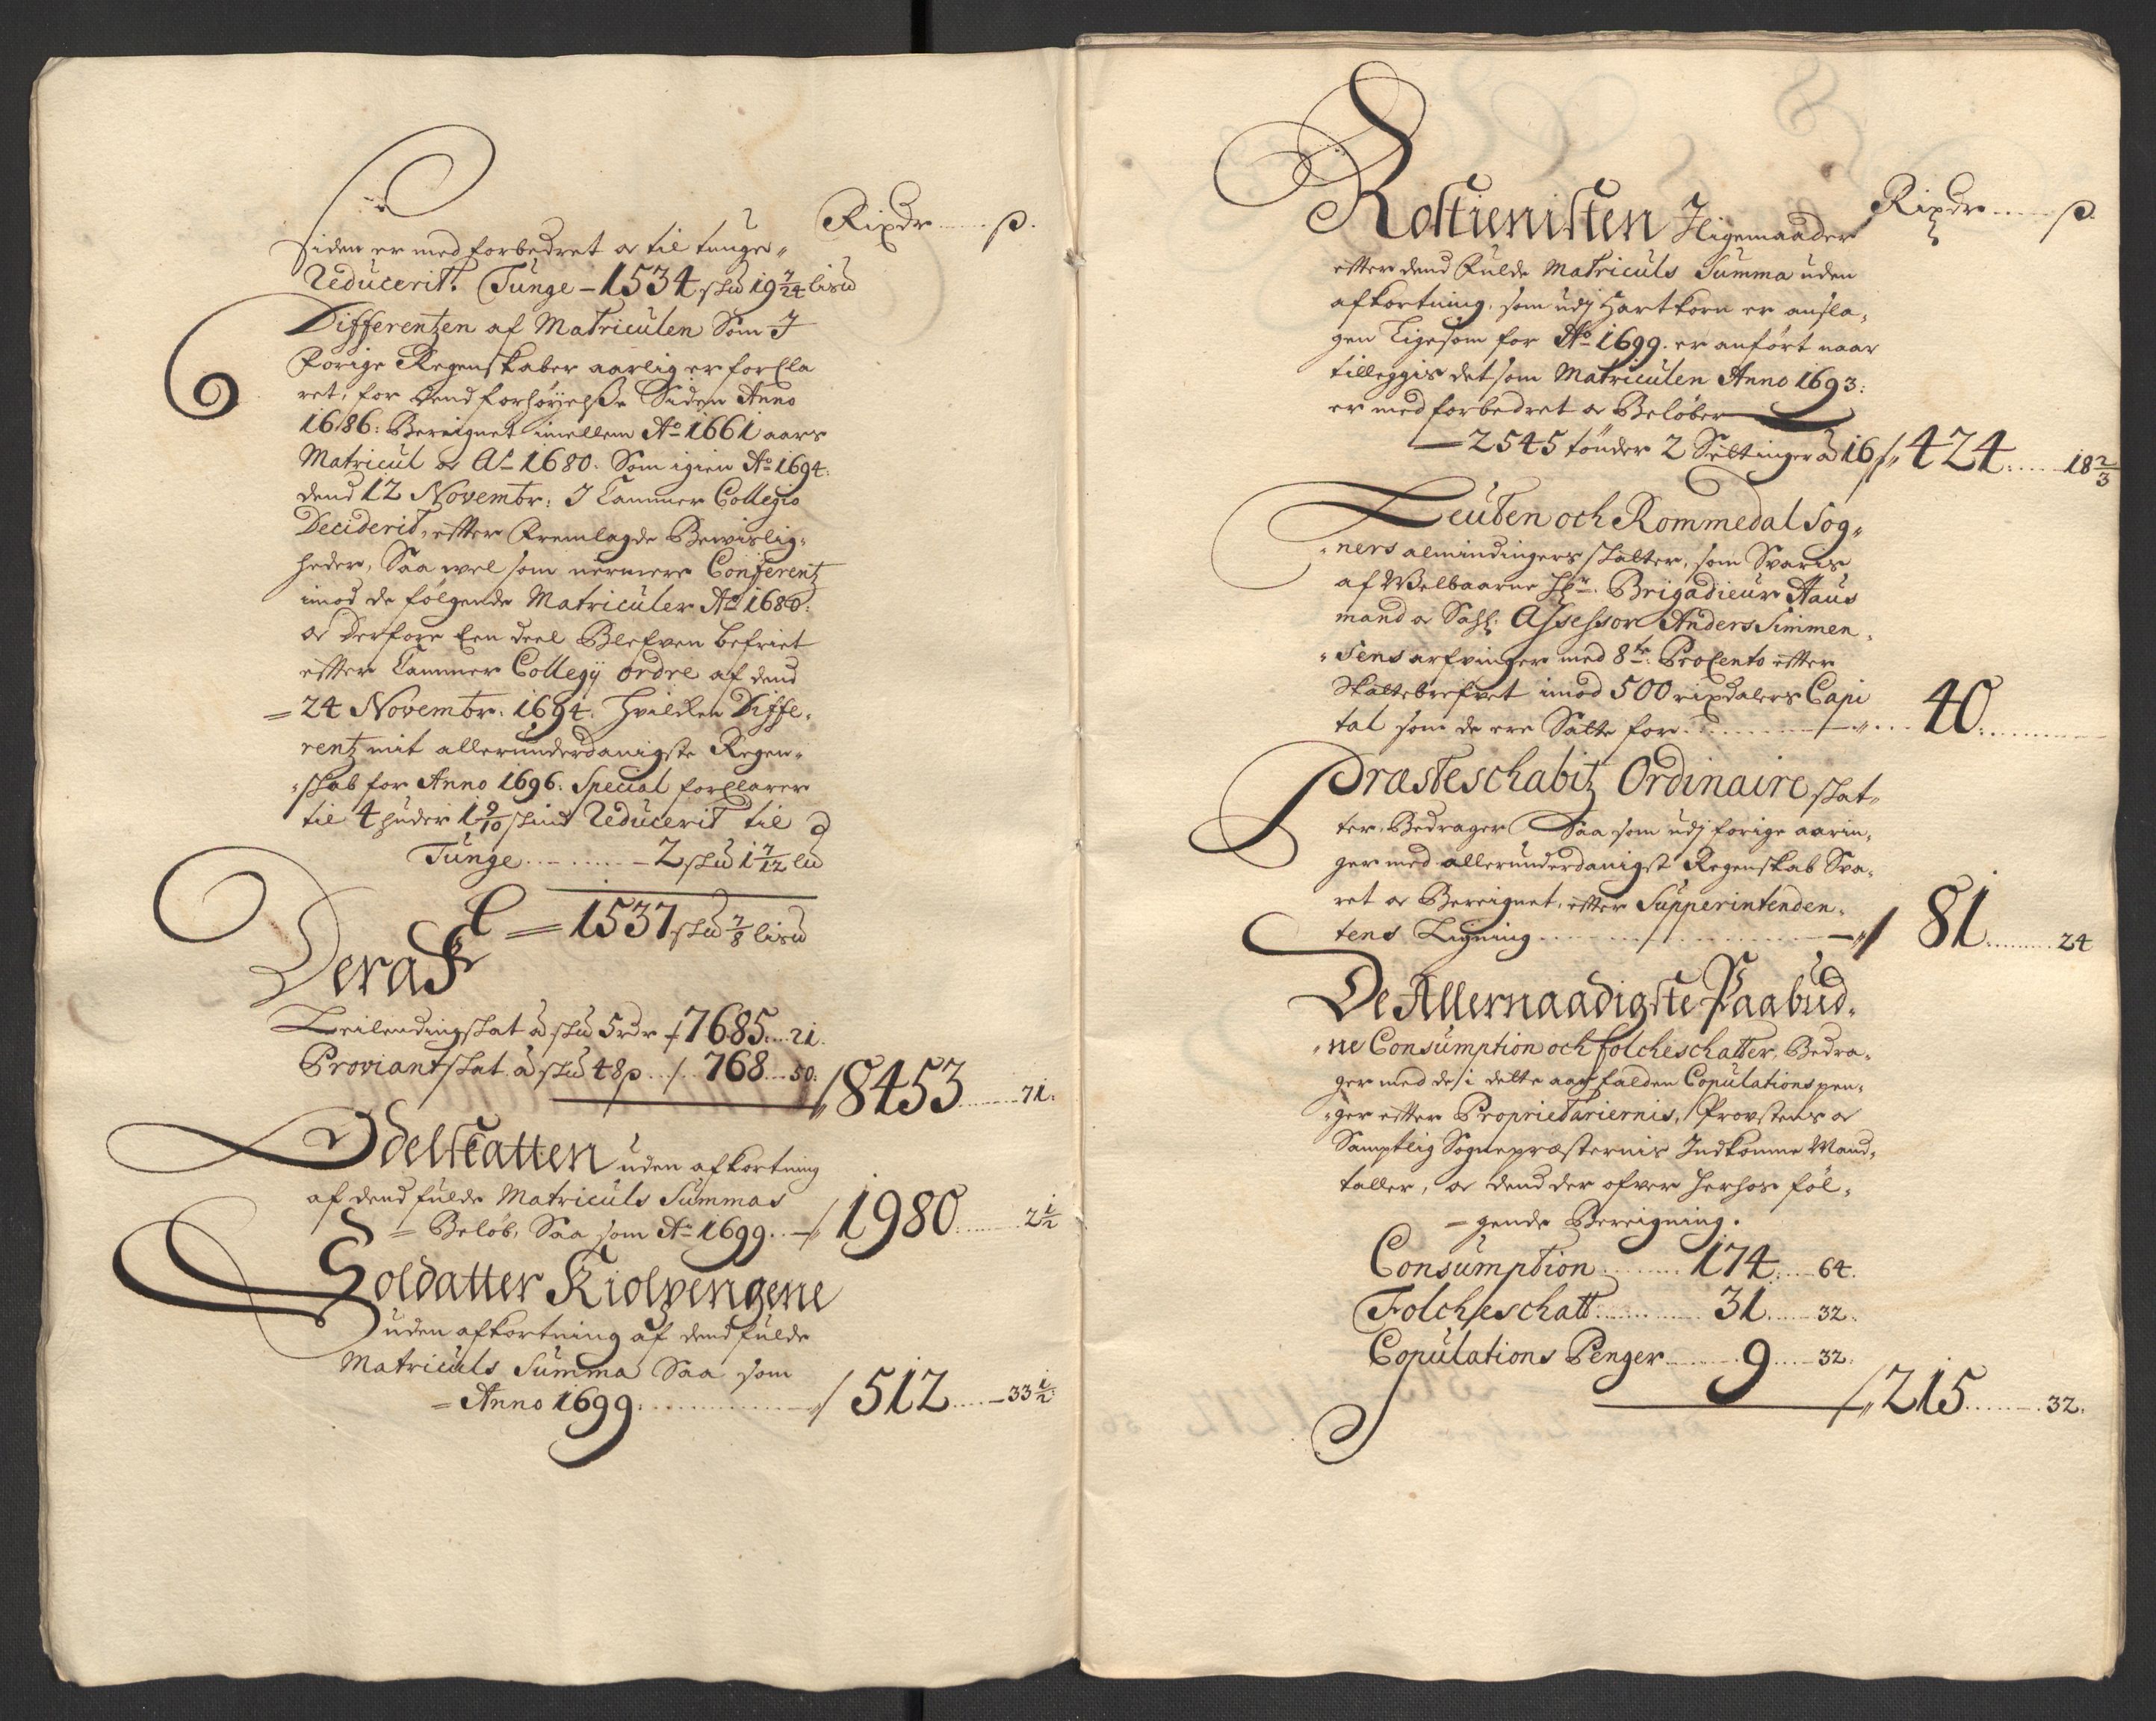 Rixdr ..... s.
Siden er med forbedret och til tunge„
Reducerit. Tunge - 1534 skud 19 7/24 lisƚƚ
Differentzen af Matriculen Som I
forige Regenskaber aarlig er forcla
ret, for dend forhøyelsse Siden Anno
1686: Bereignet imellem Ao 1661 aars
Matricul och Ao 1680. Som igien Ao 1694.
dend 12 Novembr: I Cammer Collegio
Deciderit, efter fremlagde Bewislig,
heder, Saa wel som nermere Conferentz
imod de følgende Matriculer Ao 1680:
och derfore Een deel Blefven befriet
efter Cammer Collegij ordre af dend
= 24 Novembr. 1694. Hvilcken Diffe,
rentz mit allerunderdanigste Regen„
„skab for Anno 1696. Special forclarer
til 4 huder 1 9/10 skind Reducerit til
Tunge .......... 2 skud 1 7/12 lƚƚ
= 1537 skud 7/8 lisƚƚ
Deraf
Leilendingskat â skud 5 rdr / 7685 ... 21.
Proviantskat â skud 48 s .. / .. 768 ... 50.
/ 8453 ...... 71.
Odelskatten uden afkortning
af dend fulde Matriculs Summas
= Beløb, Saa som Ao 1699. - / 1980 ...... 2 1/2
Soldatter Kiolpengene
uden afkortning af dend fulde
Matriculs Summa Saa som
= Anno 1699. ............ / 512 .... 33 1/2
Rixdr ..... s.
Rostienisten Iligemaader
efter dend fulde Matriculs Summa uden
afkortning, som udj Hartkorn er ansla,
gen Ligesom for Ao 1699. er anført naar
tilleggis det som Matriculen Anno 1693:
er med forbedret och Beløber
- 2545 tønder 2 Settinger â 16 s / 424. .... 18 2/3
Leuten och Rommedal Sog„
„ners almindingers skatter, som Svaris
af Welbaarne Hr. Brigadieur Haus
mand och Sahl: Assessor Anders Simmen„
„sens arfvinger med 8te Procento efter
Skattebrefvet imod 500 rixdalers Capi
tal som de ere Satte for ........ 40. ........
Præsteschabitz Ordinaire skat„
ter, Bedrager Saa som udj forige aarin,
ger med allerunderdanigst Regenskab Sva,
ret och Bereignet, efter Supperintenden„
tens Ligning ............ / 81. ........ 24
De Allernaadigste Paabud„
„ne Consumption och folcheschatter, Bedra,
ger med de i dette aar falden Copulations pen„
„ger efter Proprietariernis, Provstens och
Samptlig Sognepræsternis Indkomne Mand,
taller, och dend der ofver herhos føl,
= gende Bereigning.
Consumption ........ 174. ... 64.
Folcheschatt ........ 31. .... 32.
Copulations Penger ....... 9 .... 32.
/ 215 ....... 32.